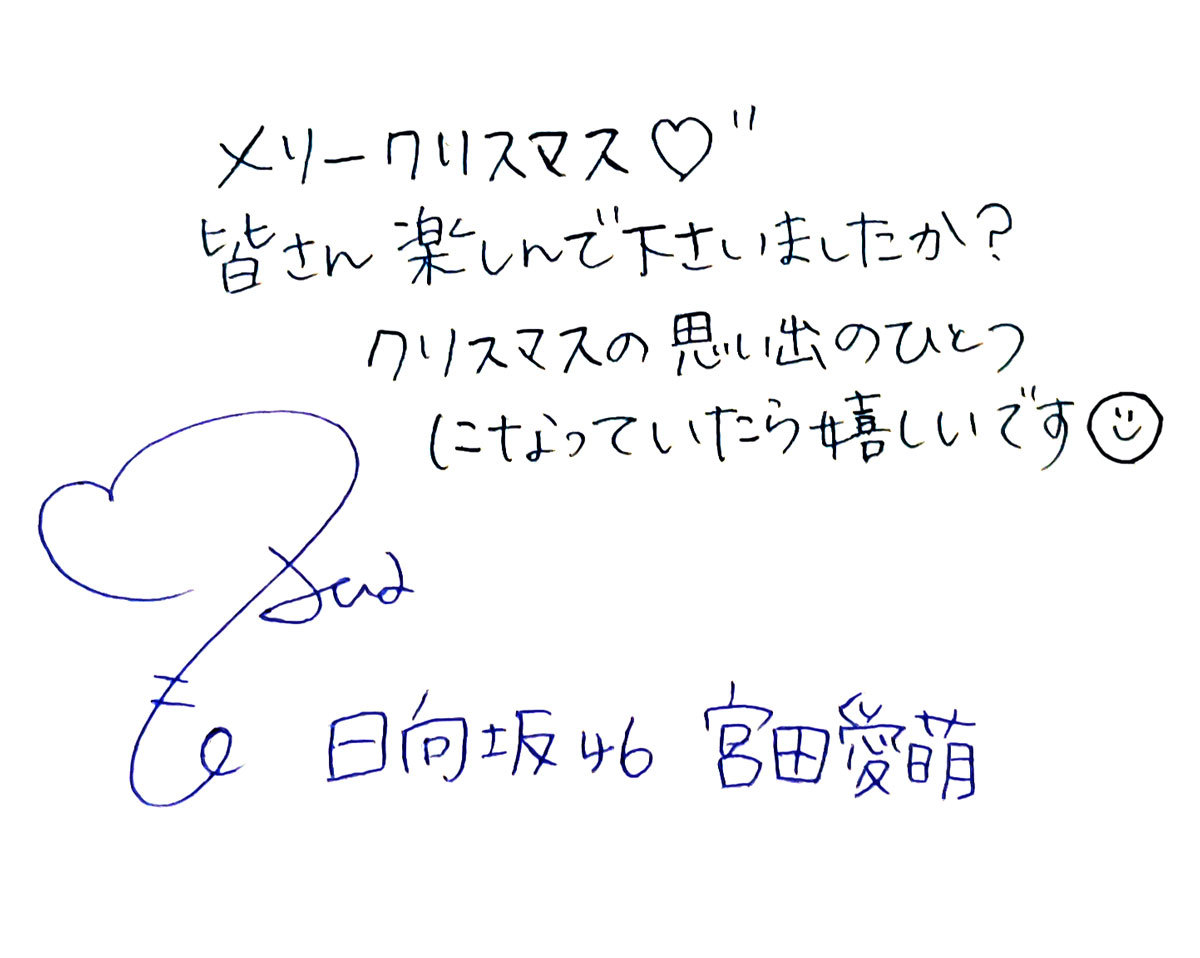 メリークリスマス♡"
皆さん 楽しんで下さいましたか?
クリスマスの思い出のひとつ
になっていたら嬉しいです☺
日向坂46 宮田愛萌